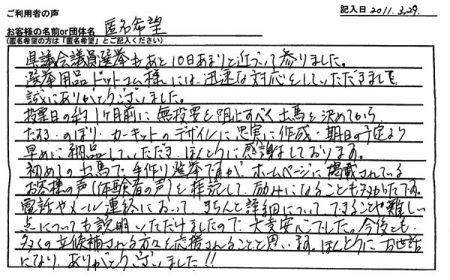 ご利用者の声
記入日 2011.3.29.
お客様の名前or団体名 匿名希望
(匿名希望の方は「匿名希望」とご記入ください)
県議会議員選挙もあと10日あまりと近づいて参りました。
選挙用品ドットコム様には、迅速な対応をしていただきまして
誠にありがとうございました。
投票日の約1ヶ月前に無投票を阻止すべく出馬を決めてから
たすき・のぼり・カーキットのデザインに忠実に作成・期日の予定より
早めに納品していただき、ほんとうに感謝しております。
初めての出馬で、手作り選挙ですが、ホームページに掲載されている
お客様の声(体験者の声)を拝読して、励みになることも多かったです。
電話やメール連絡において、きちんと詳細について、できることや難しい
点についても説明いただけましたので、大変安心でした。今後も、
多くの立候補される方々を応援されることと思います。ほんとうにお世話
になり、ありがとうございました!!